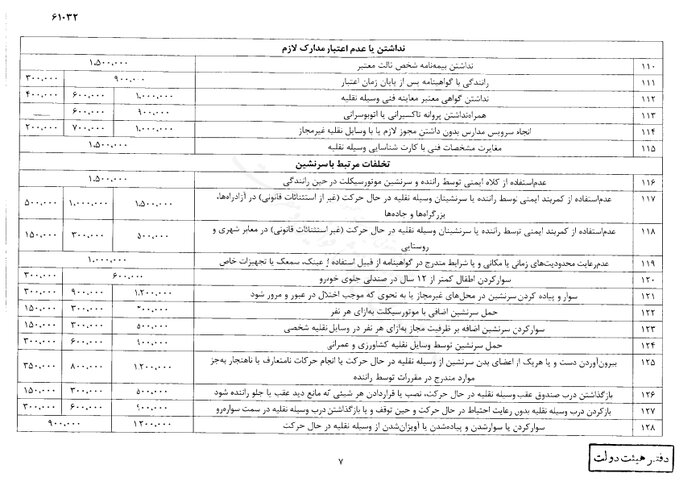 ۶۱۰۳۲
نداشتن یا عدم اعتبار مدارک لازم
۱۱۰ نداشتن بیمه‌نامه شخص ثالث معتبر ۱,۵۰۰,۰۰۰
۱۱۱ رانندگی با گواهینامه پس از پایان زمان اعتبار ۹۰۰,۰۰۰ ۳۰۰,۰۰۰
۱۱۲ نداشتن گواهی معتبر معاینه فنی وسیله نقلیه ۱,۰۰۰,۰۰۰ ۶۰۰,۰۰۰ ۴۰۰,۰۰۰
۱۱۳ همراه‌نداشتن پروانه تاکسیرانی یا اتوبوسرانی ۹۰۰,۰۰۰ ۶۰۰,۰۰۰ —
۱۱۴ انجام سرویس مدارس بدون داشتن مجوز لازم یا با وسایل نقلیه غیرمجاز ۱,۰۰۰,۰۰۰ ۷۰۰,۰۰۰ ۲۰۰,۰۰۰
۱۱۵ مغایرت مشخصات فنی با کارت شناسایی وسیله نقلیه ۱,۵۰۰,۰۰۰
تخلفات مرتبط با سرنشین
۱۱۶ عدم‌استفاده از کلاه ایمنی توسط راننده و سرنشین موتورسیکلت در حین رانندگی ۱,۵۰۰,۰۰۰
۱۱۷ عدم‌استفاده از کمربند ایمنی توسط راننده یا سرنشینان وسیله نقلیه در حال حرکت (غیر از استثنائات قانونی) در آزادراه‌ها، ۱,۵۰۰,۰۰۰ ۱,۰۰۰,۰۰۰ ۵۰۰,۰۰۰
بزرگراه‌ها و جاده‌ها
۱۱۸ عدم‌استفاده از کمربند ایمنی توسط راننده یا سرنشینان وسیله نقلیه در حال حرکت (غیر استثنائات قانونی) در معابر شهری و ۵۰۰,۰۰۰ ۳۰۰,۰۰۰ ۱۵۰,۰۰۰
روستایی
۱۱۹ عدم‌رعایت محدودیت‌های زمانی یا مکانی و یا شرایط مندرج در گواهینامه از قبیل استفاده از عینک، سمعک یا تجهیزات خاص ۱,۰۰۰,۰۰۰
۱۲۰ سوارکردن اطفال کمتر از ۱۲ سال در صندلی جلوی خودرو ۶۰۰,۰۰۰ ۳۰۰,۰۰۰
۱۲۱ سوار و پیاده کردن سرنشین در محل‌های غیرمجاز یا به نحوی که موجب اختلال در عبور و مرور شود ۱,۲۰۰,۰۰۰ ۹۰۰,۰۰۰ ۳۰۰,۰۰۰
۱۲۲ حمل سرنشین اضافی با موتورسیکلت به‌ازای هر نفر ۳۰۰,۰۰۰ ۱۵۰,۰۰۰
۱۲۳ سوارکردن سرنشین اضافه بر ظرفیت مجاز به‌ازای هر نفر در وسایل نقلیه شخصی ۵۰۰,۰۰۰ ۳۰۰,۰۰۰ ۱۵۰,۰۰۰
۱۲۴ حمل سرنشین توسط وسایل نقلیه کشاورزی و عمرانی ۶۰۰,۰۰۰ ۳۰۰,۰۰۰
۱۲۵ بیرون‌آوردن دست و یا هریک از اعضای بدن سرنشین از وسیله نقلیه در حال حرکت یا انجام حرکات نامتعارف یا ناهنجار به‌جز ۱,۲۰۰,۰۰۰ ۸۰۰,۰۰۰ ۳۵۰,۰۰۰
موارد مندرج در مقررات توسط راننده
۱۲۶ بازگذاشتن درب صندوق عقب وسیله نقلیه در حال حرکت، نصب یا قراردادن هر شیئی که مانع دید عقب یا جلو راننده شود ۵۰۰,۰۰۰ ۳۰۰,۰۰۰ ۱۵۰,۰۰۰
۱۲۷ بازکردن درب وسیله نقلیه بدون رعایت احتیاط در حال حرکت و حین توقف و یا بازگذاشتن درب وسیله نقلیه در سمت سواره‌رو ۶۰۰,۰۰۰ ۳۰۰,۰۰۰
۱۲۸ سوارکردن یا سوارشدن و پیاده‌شدن یا آویزان‌شدن از وسیله نقلیه در حال حرکت ۱,۲۰۰,۰۰۰ ۹۰۰,۰۰۰
۷
دفتر هیئت دولت